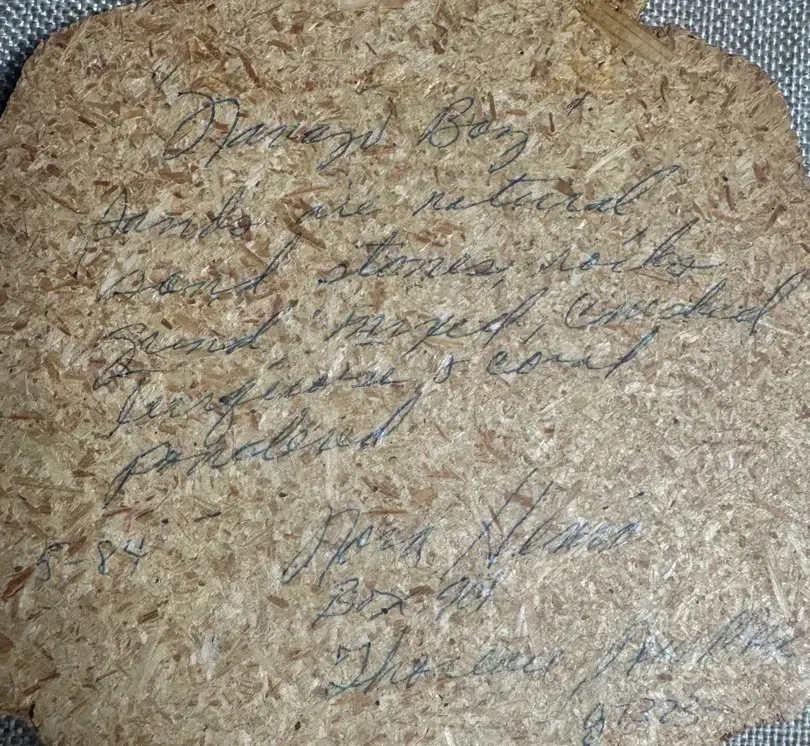 "Navajo Boy"
Sands are natural
sand stones, rocks
grind mixed, crushed
turquoise & coral
powdered
5-84
Box 94
Thoreau New Mex
87323